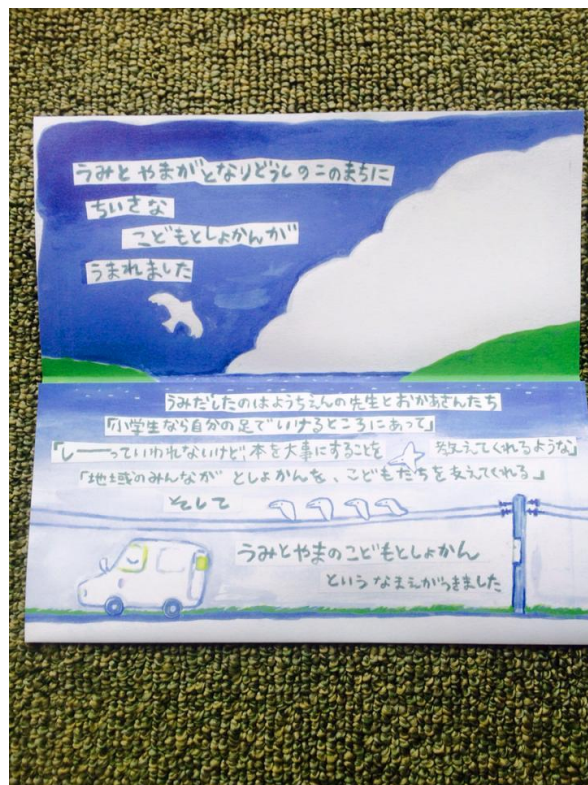 うみと やまが となりどうしの このまちに
ちいさな
こどもとしょかんが
うまれました
うみだしたのは ようちえんの 先生と おかあさんたち
「小学生なら 自分の足で いけるところにあって」
「しーーっていわれないけど、本を大事にすることを 教えてくれるような」
「地域のみんなが としょかんを、こどもたちを 支えてくれる」
そして
うみとやまのこどもとしょかん
という なまえがつきました